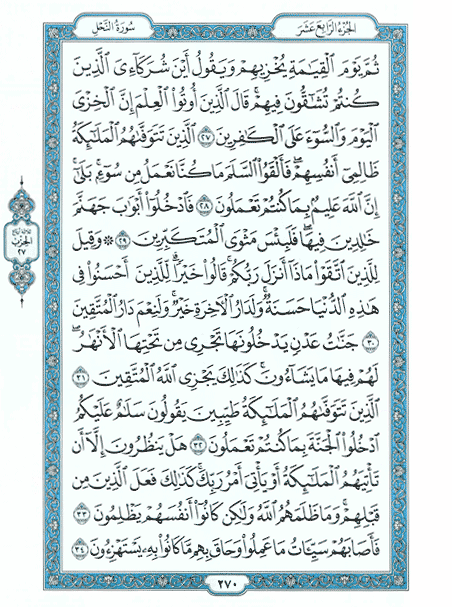 الجزء الرابع عشر
سورة النحل
ثُمَّ يَوْمَ ٱلْقِيَٰمَةِ يُخْزِيهِمْ وَيَقُولُ أَيْنَ شُرَكَآءِىَ ٱلَّذِينَ
كُنتُمْ تُشَٰٓقُّونَ فِيهِمْ ۚ قَالَ ٱلَّذِينَ أُوتُوا۟ ٱلْعِلْمَ إِنَّ ٱلْخِزْىَ
ٱلْيَوْمَ وَٱلسُّوٓءَ عَلَى ٱلْكَٰفِرِينَ ٢٧ ٱلَّذِينَ تَتَوَفَّىٰهُمُ ٱلْمَلَٰٓئِكَةُ
ظَالِمِىٓ أَنفُسِهِمْ ۖ فَأَلْقَوُا۟ ٱلسَّلَمَ مَا كُنَّا نَعْمَلُ مِن سُوٓءٍۭ ۚ بَلَىٰٓ
إِنَّ ٱللَّهَ عَلِيمٌۢ بِمَا كُنتُمْ تَعْمَلُونَ ٢٨ فَٱدْخُلُوٓا۟ أَبْوَٰبَ جَهَنَّمَ
خَٰلِدِينَ فِيهَا ۖ فَلَبِئْسَ مَثْوَى ٱلْمُتَكَبِّرِينَ ٢٩ ۞ وَقِيلَ
لِلَّذِينَ ٱتَّقَوْا۟ مَاذَآ أَنزَلَ رَبُّكُمْ ۚ قَالُوا۟ خَيْرًا ۗ لِّلَّذِينَ أَحْسَنُوا۟ فِى
هَٰذِهِ ٱلدُّنْيَا حَسَنَةٌ ۚ وَلَدَارُ ٱلْءَاخِرَةِ خَيْرٌ ۚ وَلَنِعْمَ دَارُ ٱلْمُتَّقِينَ
٣٠ جَنَّٰتُ عَدْنٍ يَدْخُلُونَهَا تَجْرِى مِن تَحْتِهَا ٱلْأَنْهَٰرُ ۖ
لَهُمْ فِيهَا مَا يَشَآءُونَ ۚ كَذَٰلِكَ يَجْزِى ٱللَّهُ ٱلْمُتَّقِينَ ٣١
ٱلَّذِينَ تَتَوَفَّىٰهُمُ ٱلْمَلَٰٓئِكَةُ طَيِّبِينَ ۙ يَقُولُونَ سَلَٰمٌ عَلَيْكُمُ
ٱدْخُلُوا۟ ٱلْجَنَّةَ بِمَا كُنتُمْ تَعْمَلُونَ ٣٢ هَلْ يَنظُرُونَ إِلَّآ أَن
تَأْتِيَهُمُ ٱلْمَلَٰٓئِكَةُ أَوْ يَأْتِىَ أَمْرُ رَبِّكَ ۚ كَذَٰلِكَ فَعَلَ ٱلَّذِينَ مِن
قَبْلِهِمْ ۚ وَمَا ظَلَمَهُمُ ٱللَّهُ وَلَٰكِن كَانُوٓا۟ أَنفُسَهُمْ يَظْلِمُونَ ٣٣
فَأَصَابَهُمْ سَيِّـَٔاتُ مَا عَمِلُوا۟ وَحَاقَ بِهِم مَّا كَانُوا۟ بِهِۦ يَسْتَهْزِءُونَ ٣٤
الحزب
٢٧
٢٧٠